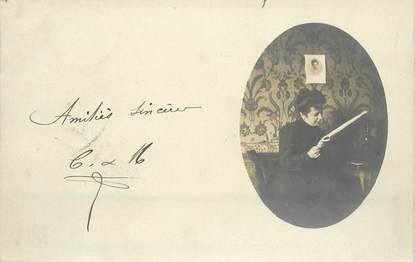 Amitiés sincère
C. & M